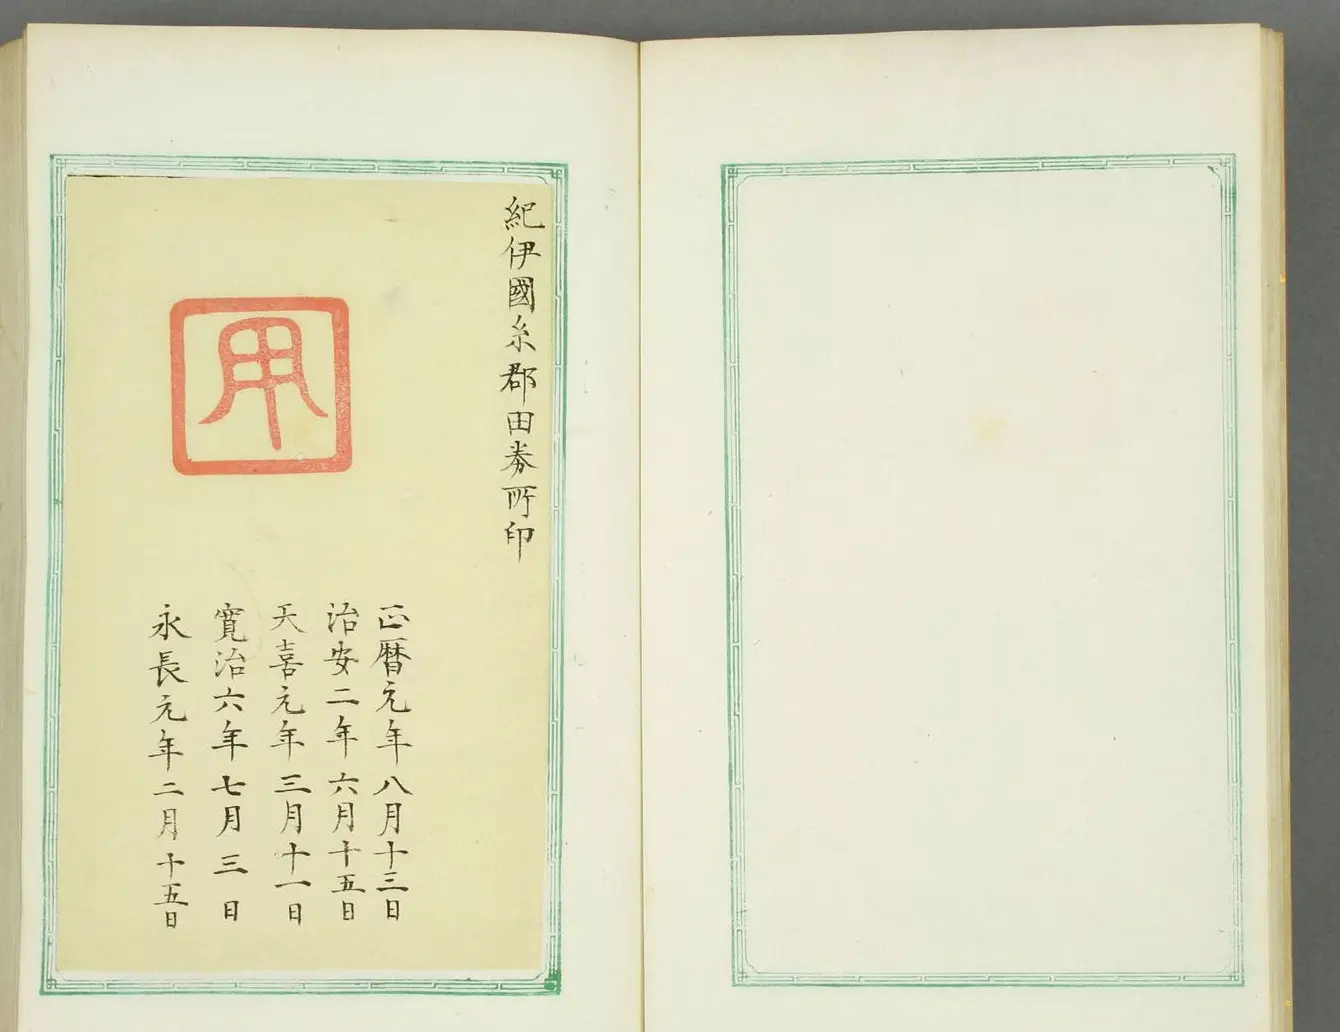 紀伊國糸郡田券所印
用
正暦元年八月十三日
治安二年六月十五日
天喜元年三月十一日
寛治六年七月三日
永長元年二月十五日